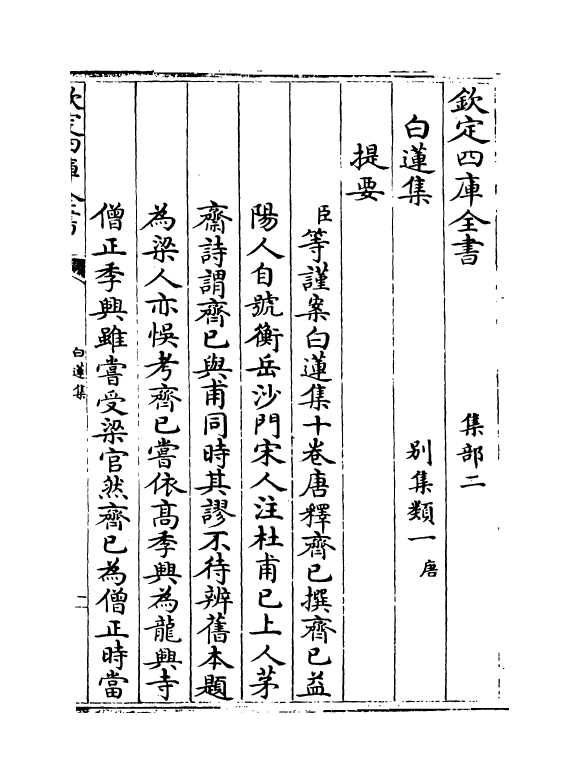 欽定四庫全書
集部二
白蓮集
別集類一 唐
提要
臣等謹案白蓮集十卷唐釋齊已撰齊已益
陽人自號衡岳沙門宋人注杜甫已上人茅
齋詩謂齊已與甫同時其謬不待辨舊本題
為梁人亦悞考齊已嘗依高季興為龍興寺
僧正季興雖嘗受梁官然齊已為僧正時當
欽定四庫全書
白蓮集